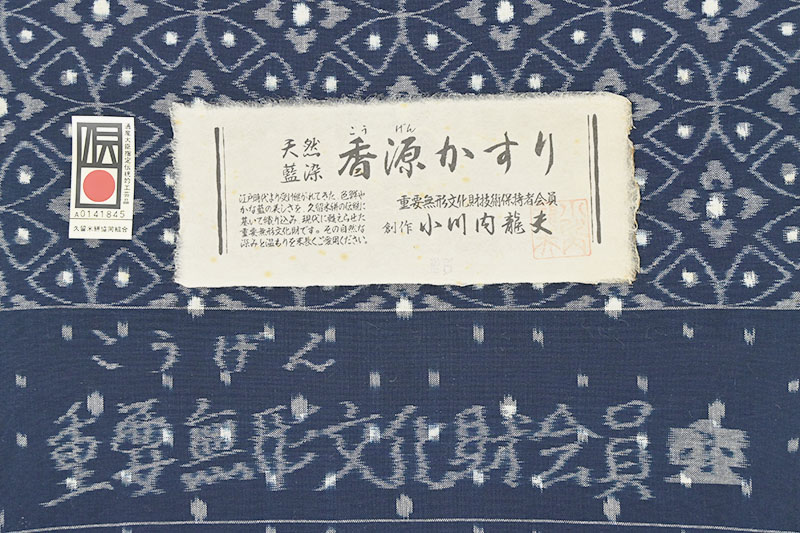 通産大臣指定伝統的工芸品
伝
A0141845
久留米絣協同組合
天然
藍染
こうげん
香源かすり
江戸時代より受け継がれてきた、色鮮や
かな藍の美しさを、久留米絣の伝統に
基いて織り込み、現代に甦えらせた
重要無形文化財です。その自然な
深みと温もりを末長くご愛用ください。
重要無形文化財技術保持者会員
創作 小川内龍夫
こうげん
重要無形文化財会員